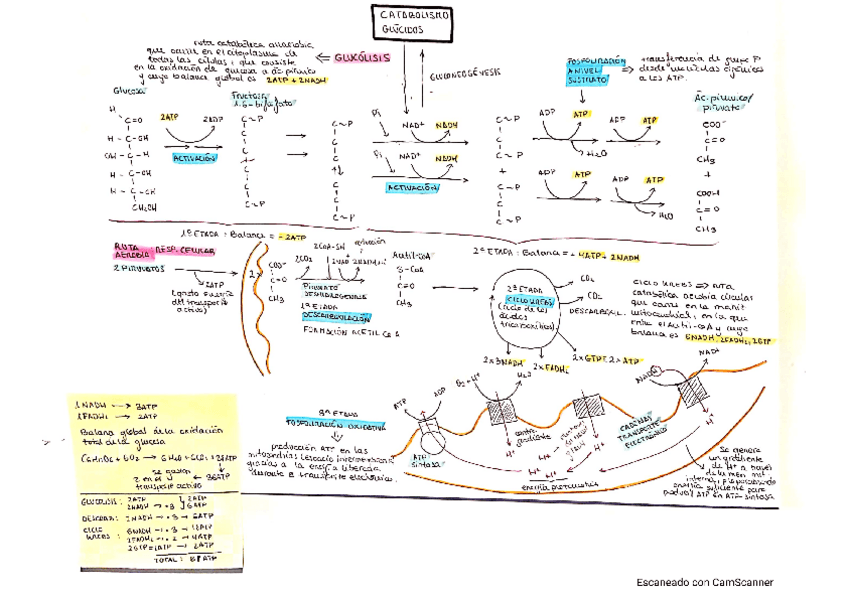 CATABOLISMO
GLÚCIDOS
ruta catabólica anaerobia
que ocurre en el citoplasma de
todas las células, que consiste
en la oxidación de glucosa a ác. pirúvico
y cuyo balance global es 2ATP + 2NADH
⇐ GLUCÓLISIS
GLUCONEOGÉNESIS
FOSFORILACIÓN
A NIVEL
SUSTRATO
⇒ transferencia de grupo P
desde moléculas orgánicas
a los ATP.
Glucosa
Fructosa
1,6-bifosfato
Ác. pirúvico/
piruvato
2ATP 2ADP
ACTIVACIÓN
Pi NAD+ NADH
Pi NAD+ NADH
ACTIVACIÓN
ADP ATP ADP ATP
H2O
ADP ATP ADP ATP
H2O
1ª ETAPA: Balance = -2ATP
2ª ETAPA: Balance = 4ATP + 2NADH
RUTA
AEROBIA: RESP. CELULAR
2 PIRUVATOS
2ATP
2CO2
2CoA-SH
PIRUVATO
DESHIDROGENASA
1ª ETAPA
DESCARBOXILACIÓN
FORMACIÓN ACETIL CoA
Acetil-CoA
S-CoA
C=O
CH3
2ª ETAPA
CICLO KREBS
(ciclo de los
ácidos
tricarboxílicos)
CO2
CO2
DESCARBOXIL.
CICLO KREBS ⇒ ruta
catabólica aerobia circular
que ocurre en la matriz
mitocondrial, en la que
entra el Acetil-CoA y cuyo
balance es 6NADH, 2FADH2, 2GTP
2x3NADH
2xFADH2
2xGTP
2xATP
1 NADH → 3ATP
1 FADH2 → 2ATP
Balance global de la oxidación
total de la glucosa
C6H12O6 + 6O2 → 6H2O + 6CO2 + 38ATP
se gastan
2 en el
transporte activo
36ATP
GLUCÓLISIS: 2ATP 2ATP
2NADH → ·3 6ATP
DESCARB: 2NADH → ·3 → 6ATP
CICLO
KREBS:
6NADH → ·3 → 18ATP
2FADH2 → ·2 → 4ATP
2GTP = 2ATP → 2ATP
TOTAL:
3ª ETAPA
FOSFORILACIÓN OXIDATIVA
producción ATP en las
mitocondrias
gracias a la energía liberada
durante el transporte electrones.
ATP ADP
ATP
sintasa
O2 + H+ H2O
contra
gradiente
CADENAS
TRANSPORTE
ELECTRONES
NADH NAD+
H+
energía protomotriz
Se genera
un gradiente
de H+ a través
de la mem. mit.
interna, proporcionando
energía suficiente para
producir ATP en ATP sintasa
Escaneado con CamScanner